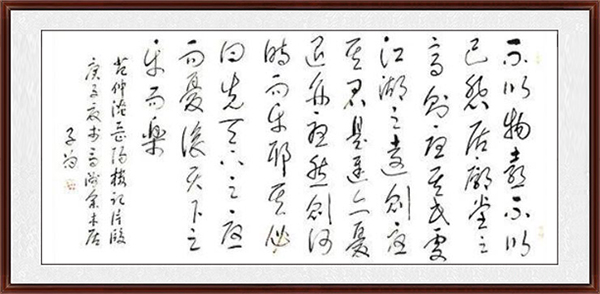 不以物喜不以
己悲居廟堂之
高則憂其民處
江湖之遠則憂
其君是進亦憂
退亦憂然則何
時而樂耶其必
曰先天下之憂
而憂後天下之
樂而樂
范仲淹岳陽樓記片段
庚子夏書